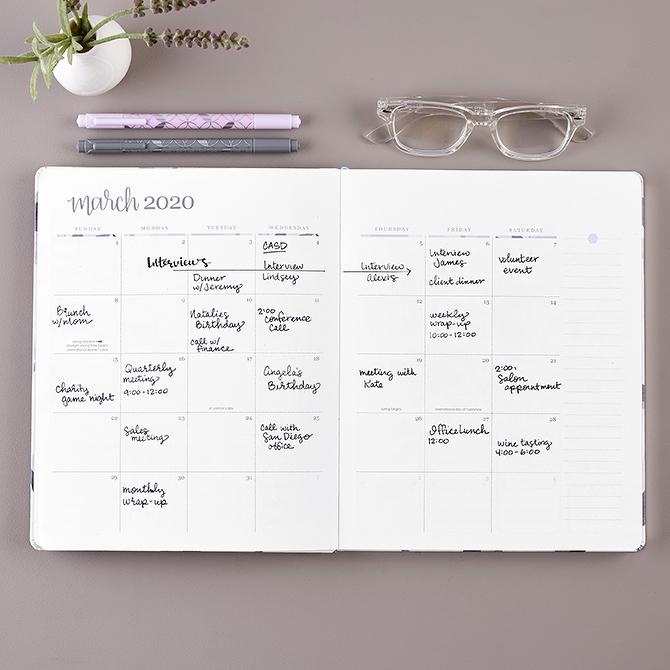 march 2020
SUNDAY MONDAY TUESDAY WEDNESDAY THURSDAY FRIDAY SATURDAY
1 2 3 4 5 6 7
Interviews
Dinner
w/Jeremy
CASD
Interview
Lindsey
Interview
Alexis
Interview
James
client dinner
volunteer
event
8 9 10 11 12 13 14
Brunch
w/mom
Natalies
Birthday
call w/
finance
2:00
conference
call
weekly
wrap-up
10:00-12:00
15 16 17 18 19 20 21
Charity
game night
Quarterly
meeting
9:00-12:00
Angela's
Birthday
meeting with
Kate
2:00-
Salon
appointment
22 23 24 25 26 27 28
Sales
meeting
Call with
San Diego
office
Office Lunch
12:00
wine tasting
4:00-6:00
29 30 31
monthly
wrap-up